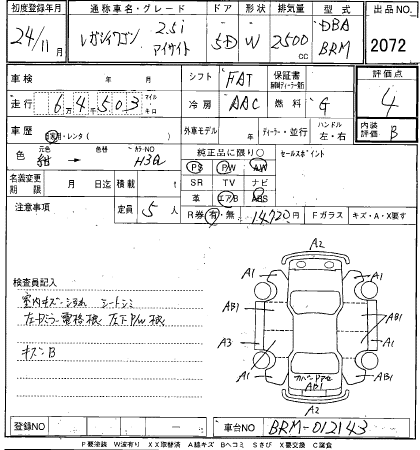 初度登録年月 通称車名・グレード ドア 形状 排気量 型式 出品NO
24/11月 レガシィワゴン 2.5i アイサイト 5D W 2500cc DBA BRM 2072
車検 年 月 シフト FAT 保証書 評価点
走行 6万4千503 マイル キロ 冷房 AAC 燃料 G 4
車歴 自家用・レンタ( ) 外車モデル 年 ディーラー・並行 ハンドル 左・右 内装評価 B
色 元色 紺 色替 カラーNO H3Q 純正品に限り○ セールスポイント
PS PW AW
名義変更期限 月 日迄 積載 t SR TV ナビ
革 エアB ABS
注意事項 定員 5人 R券 有・無 14720円 Fガラス キズ・A・X要す
A2
検査員記入
A1 A1
室内キズ・シミ シートシミ
AB1 AB1
左ドアミラー電格根 左下P/W根
A3 A1
キズンB
A1 AB1
カバーP AP2
AB1
A2
登録NO ― 車台NO BRM-012143
P要塗装 W波有り XX取替済 A線キズ Bヘコミ Sさび X要交換 C腐食